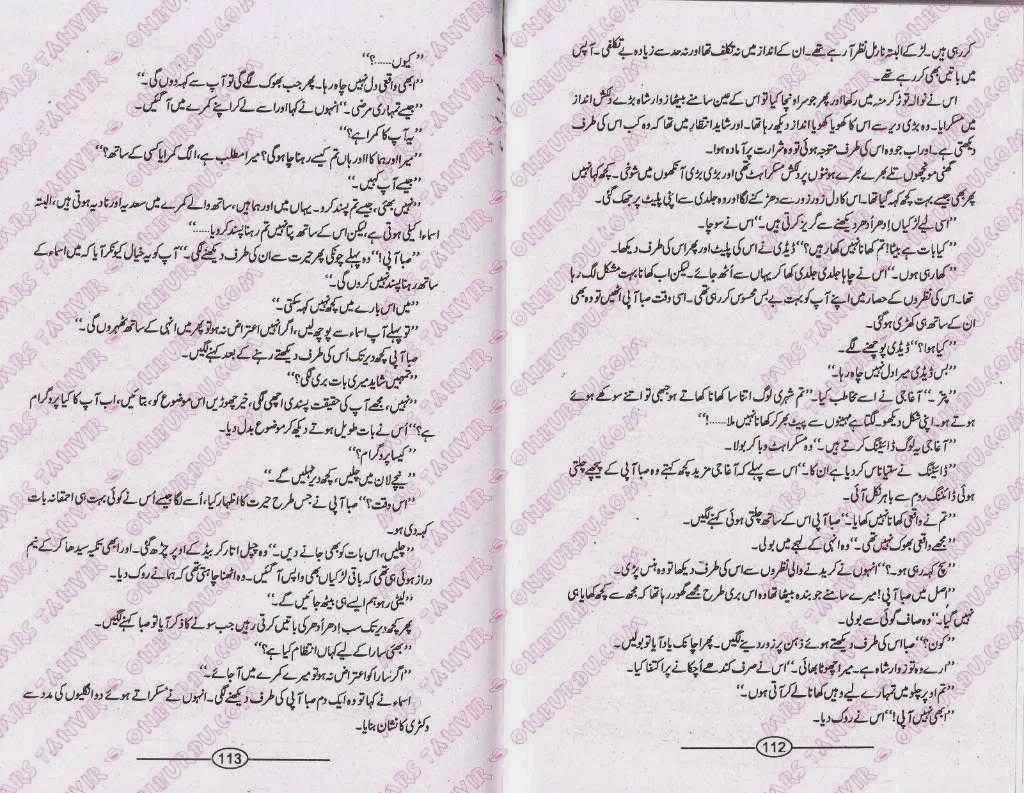 کر رہی ہیں۔ لڑکے البتہ نارمل نظر آ رہے تھے۔ ان کے انداز میں نہ تکلف تھا اور نہ حد سے زیادہ بے تکلفی۔ آپس
میں باتیں بھی کر رہے تھے۔
اس نے نوالہ توڑ کر منہ میں رکھا اور پھر جو سر اونچا کیا تو اس کے عین سامنے بیٹھا زوار شاہ بڑے دلکش انداز
میں مسکرایا۔ وہ بڑی دیر سے اس کا کھویا کھویا انداز دیکھ رہا تھا۔ اور شاید انتظار میں تھا کہ وہ کب اس کی طرف
دیکھتی ہے۔ اور اب جو وہ اس کی طرف متوجہ ہوئی تو وہ شرارت پر آمادہ ہوا۔
گھنی مونچھوں تلے بھرے بھرے ہونٹوں پر دلکش مسکراہٹ تھی اور بڑی بڑی آنکھوں میں شوخی۔ کچھ کہا نہیں
پھر بھی جیسے بہت کچھ کہہ گیا تھا۔ اس کا دل زور زور سے دھڑکنے لگا اور وہ جلدی سے اپنی پلیٹ پر جھک گئی۔
”اسی لیے لڑکیاں ادھر اُدھر دیکھنے سے گریز کرتی ہیں۔“ اس نے سوچا۔
”کیا بات ہے بیٹا! تم کھانا نہیں کھا رہیں؟“ ڈیڈی نے اس کی پلیٹ اور پھر اس کی طرف دیکھا۔
”کھا رہی ہوں۔“ اس نے چاہا جلدی جلدی کھا کر یہاں سے اُٹھ جائے۔ لیکن اب کھانا بہت مشکل لگ رہا
تھا۔ اس کی نظروں کے حصار میں اپنے آپ کو بہت بے بس محسوس کر رہی تھی۔ اسی وقت صبا آپی اٹھیں تو وہ بھی
ان کے ساتھ ہی کھڑی ہو گئی۔
”کیا ہوا؟“ ڈیڈی پوچھنے لگے۔
”بس ڈیڈی میرا دل نہیں چاہ رہا۔“
”پتر۔“ آغا جی نے اسے مخاطب کیا۔ ”تم شہری لوگ اتنا سا کھانا کھاتے ہو جبھی تو اتنے سوکھے ہوئے
ہوتے ہو۔ اپنی شکل دیکھو۔ لگتا ہے مہینوں سے پیٹ بھر کر کھانا نہیں ملا......!“
”آغا جی یہ لوگ ڈائیٹنگ کرتے ہیں۔“ وہ مسکراہٹ دبا کر بولا۔
”ڈائیٹنگ نے ستیاناس کر دیا ہے ان کا۔“ اس سے پہلے کہ آغا جی مزید کچھ کہتے وہ صبا آپی کے پیچھے چلتی
ہوئی ڈائننگ روم سے باہر نکل آئی۔
”تم نے واقعی کھانا نہیں کھایا۔“ صبا آپی اس کے ساتھ چلتی ہوئی کہنے لگیں۔
”مجھے واقعی بھوک نہیں تھی۔“ وہ انہی کے لہجے میں بولی۔
”سچ کہہ رہی ہو۔؟“ انہوں نے کریدنے والی نظروں سے اس کی طرف دیکھا تو وہ ہنس پڑی۔
”اصل میں صبا آپی! میرے سامنے جو بندہ بیٹھا تھا وہ اس بری طرح مجھے گھور رہا تھا کہ مجھ سے کچھ کھایا ہی
نہیں گیا۔“ وہ صاف گوئی سے بولی۔
”کون؟“ صبا اس کی طرف دیکھتے ہوئے ذہن پر زور دینے لگیں۔ پھر اچانک یاد آیا تو بولیں۔
”ارے وہ تو زوار شاہ ہے۔ میرا چھوٹا بھائی۔“ اس نے صرف کندھے اُچکانے پر اکتفا کیا۔
”تم اوپر چلو میں تمہارے لیے وہیں کھانا لے کر آتی ہوں۔“
”ابھی نہیں آپی!“ اس نے روک دیا۔
112
”کیوں......؟“
”ابھی واقعی دل نہیں چاہ رہا۔ پھر جب بھوک لگے گی تو آپ سے کہہ دوں گی۔“
”جیسے تمہاری مرضی۔“ انہوں نے کہا اور اسے لے کر اپنے کمرے میں آ گئیں۔
”یہ آپ کا کمرا ہے؟“
”میرا اور ہما کا اور ہاں تم کیسے رہنا چاہو گی؟ میرا مطلب ہے، الگ کمرا یا کسی کے ساتھ؟“
”جیسے آپ کہیں۔“
”نہیں بھئی، جیسے تم پسند کرو۔ یہاں میں اور ہما ہیں، ساتھ والے کمرے میں سعدیہ اور نادیہ ہوتی ہیں، البتہ
اسماء اکیلی ہوتی ہے لیکن اس کے ساتھ پتا نہیں تم رہنا پسند کرو یا......“
”صبا آپی!“ وہ پہلے چونکی پھر حیرت سے ان کی طرف دیکھنے لگی۔ ”آپ کو یہ خیال کیونکر آیا کہ میں اسماء کے
ساتھ رہنا پسند نہیں کروں گی۔“
”میں اس بارے میں کچھ نہیں کہہ سکتی۔“
”تو پہلے آپ اسماء سے پوچھ لیں، اگر انہیں اعتراض نہ ہو تو پھر میں انہی کے ساتھ ٹھہروں گی۔“
صبا آپی کچھ دیر تک اُس کی طرف دیکھتے رہنے کے بعد کہنے لگیں۔
”تمہیں شاید میری بات بری لگی؟“
”نہیں، مجھے آپ کی حقیقت پسندی اچھی لگی، خیر چھوڑیں اس موضوع کو، بتائیں، اب آپ کا کیا پروگرام
ہے؟“ اُس نے بات طویل ہوتے دیکھ کر موضوع بدل دیا۔
”کیسا پروگرام؟“
”نیچے لان میں چلیں، کچھ دیر ٹہلیں گے۔“
”اس وقت؟“ صبا آپی نے جس طرح حیرت کا اظہار کیا، اُسے لگا جیسے اُس نے کوئی بہت ہی احمقانہ بات
کہہ دی ہو۔
”چلیں، اس بات کو بھی جانے دیں۔“ وہ چپل اتار کر بیڈ کے اوپر چڑھ گئی۔ اور ابھی تکیہ سیدھا کر کے نیم
دراز ہوئی ہی تھی کہ باقی لڑکیاں بھی واپس آ گئیں۔ وہ اٹھنا چاہتی تھی کہ ہما نے روک دیا۔
”لیٹی رہو ہم ایسے ہی بیٹھ جائیں گے۔“
پھر کچھ دیر تک سب ادھر اُدھر کی باتیں کرتی رہیں جب سونے کا ذکر آیا تو صبا کہنے لگیں۔
”بھئی سارا کے لیے کہاں انتظام کیا ہے؟“
”اگر سارا کو اعتراض نہ ہو تو میرے کمرے میں آ جائے۔“
اسماء نے کہا تو وہ ایک دم صبا آپی کی طرف دیکھنے لگی۔ انہوں نے مسکراتے ہوئے دو انگلیوں کی مدد سے
وکٹری کا نشان بنایا۔
113